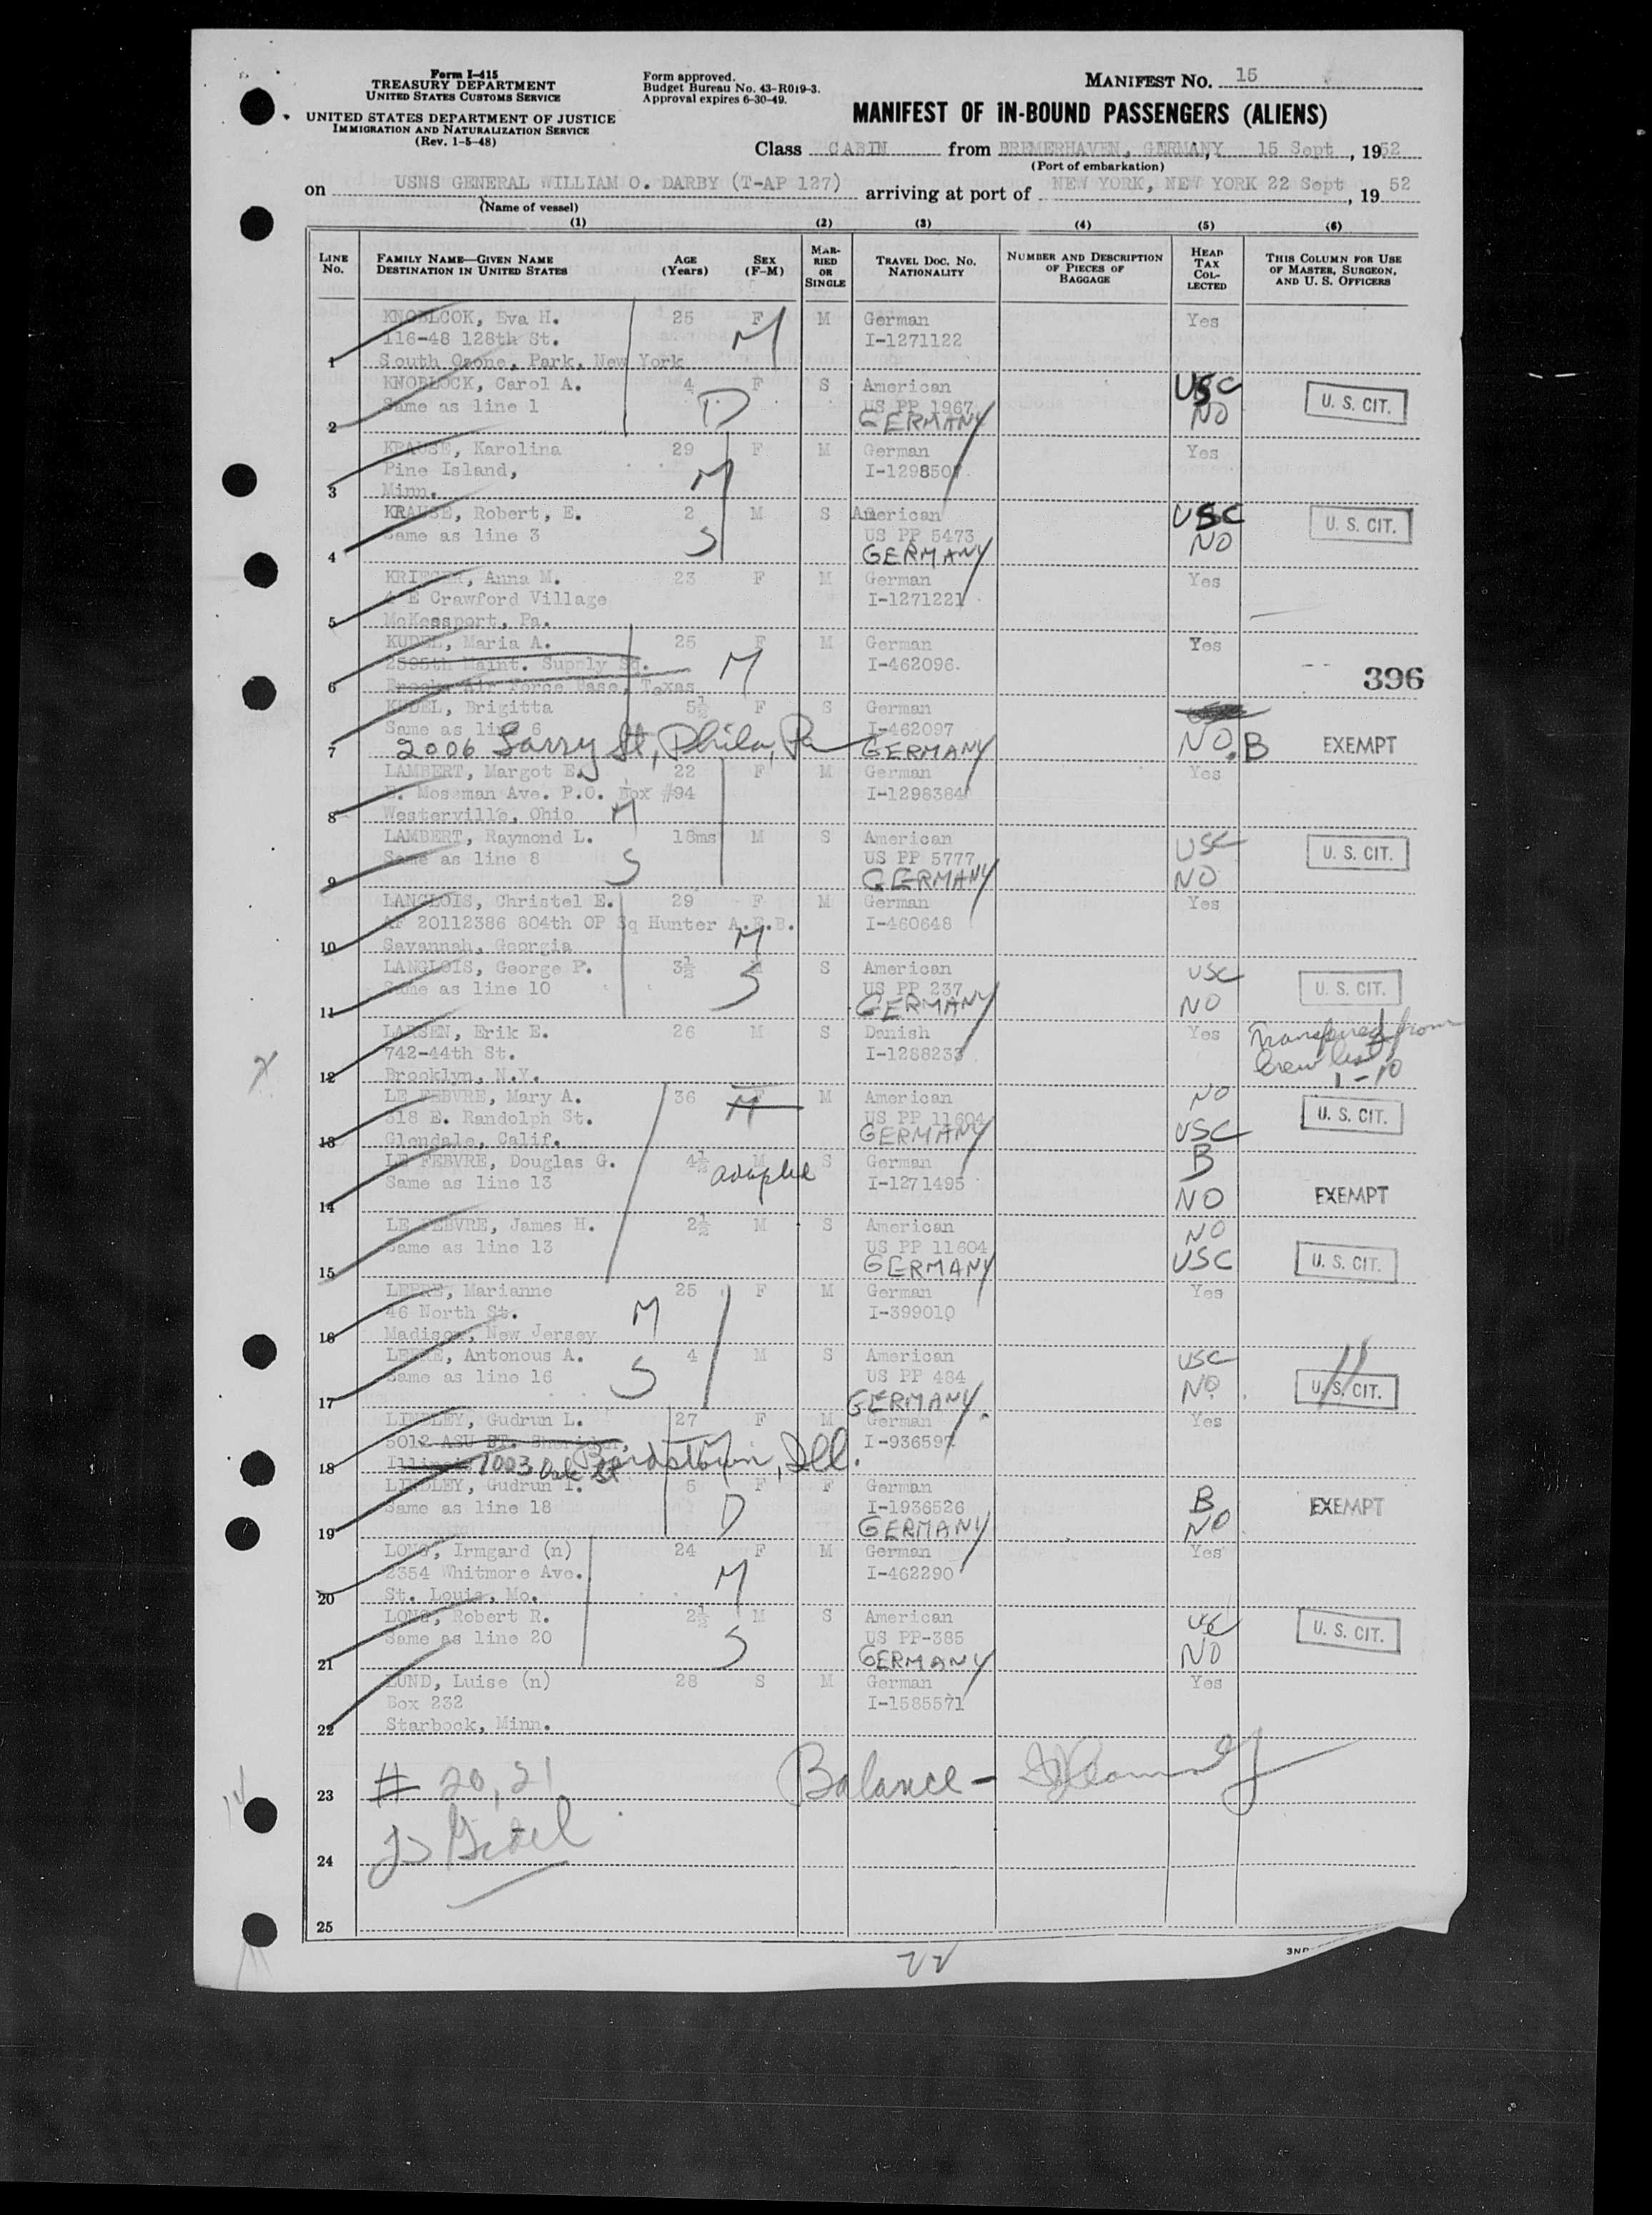 Form I-415
TREASURY DEPARTMENT
UNITED STATES CUSTOMS SERVICE
UNITED STATES DEPARTMENT OF JUSTICE
IMMIGRATION AND NATURALIZATION SERVICE
(Rev. 1-5-48)
Form approved.
Budget Bureau No. 43-R019-3.
Approval expires 6-30-49.
MANIFEST NO. 15
MANIFEST OF IN-BOUND PASSENGERS (ALIENS)
Class CABIN from BREMERHAVEN, GERMANY, 15 Sept, 1952
(Port of embarkation)
on USNS GENERAL WILLIAM O. DARBY (T-AP 127) arriving at port of NEW YORK, NEW YORK 22 Sept, 1952
(Name of vessel)
(1) (2) (3) (4) (5) (6)
LINE No. FAMILY NAME—GIVEN NAME DESTINATION IN UNITED STATES AGE (Years) SEX (F-M) MARRIED OR SINGLE TRAVEL DOC. NO. NATIONALITY NUMBER AND DESCRIPTION OF PIECES OF BAGGAGE HEAD TAX COLLECTED THIS COLUMN FOR USE OF MASTER, SURGEON, AND U. S. OFFICERS
KNOBLCOK, Eva H. 25 F M German Yes
116-48 128th St. M I-1271122
1 South Ozone, Park, New York
KNOBLOCK, Carol A. 4 F S American USC U. S. CIT.
Same as line 1 D US PP 1967 NO
2 GERMANY
KRAUSE, Karolina 29 F M German Yes
Pine Island, M I-129850
3 Minn.
KRAUSE, Robert, E. 2 M S American USC U. S. CIT.
Same as line 3 S US PP 5473 NO
4 GERMANY
KRIEGER, Anna M. 23 F M German Yes
4 E Crawford Village I-1271221
5 McKessport, Pa.
KUDEL, Maria A. 25 F M German Yes
2595th Maint. Supply Sq. M I-462096.
6 Brooks Air Force Base, Texas 396
KUDEL, Brigitta 5½ F S German
Same as line 6 I-462097
7 2006 Sarry St, Phila, Pa GERMANY NO. B EXEMPT
LAMBERT, Margot E. 22 F M German Yes
E. Mossman Ave. P.O. Box #94 I-1298384
8 Westerville, Ohio M
LAMBERT, Raymond L. 18ms M S American USC U. S. CIT.
Same as line 8 S US PP 5777 NO
9 GERMANY
LANGLOIS, Christel E. 29 F M German Yes
AF 20112386 804th OP Sq Hunter A.F.B. I-460648
10 Savannah, Georgia M
LANGLOIS, George P. 3½ M S American USC U. S. CIT.
Same as line 10 S US PP 237 NO
11 GERMANY
LARSEN, Erik E. 26 M S Danish Yes Transferred from
742-44th St. I-1288233 Crew list
12 Brooklyn, N.Y. 1-10
LE FEBVRE, Mary A. 36 F M American NO U. S. CIT.
318 E. Randolph St. M US PP 11604 USC
13 Glendale, Calif. GERMANY
LE FEBVRE, Douglas G. 4½ M S German B
Same as line 13 adopted I-1271495 NO EXEMPT
14
LE FEBVRE, James H. 2½ M S American NO
Same as line 13 US PP 11604 USC U. S. CIT.
15 GERMANY
LEPRE, Marianne 25 F M German Yes
46 North St. M I-399010
16 Madison, New Jersey
LEPRE, Antonous A. 4 M S American USC
Same as line 16 S US PP 484 NO U. S. CIT.
17 GERMANY
LINDLEY, Gudrun L. 27 F M German Yes
5012 ASU FT. Sheridan, I-936597
18 Illinois 1003 Oak St Beardstown, Ill.
LINDLEY, Gudrun I. 5 F F German B EXEMPT
Same as line 18 D I-1936526 NO
19 GERMANY
LONG, Irmgard (n) 24 F M German Yes
2354 Whitmore Ave. M I-462290
20 St. Louis, Mo.
LONG, Robert R. 2½ M S American USC U. S. CIT.
Same as line 20 S US PP-385 NO
21 GERMANY
LUND, Luise (n) 28 S M German Yes
Box 232 I-1585571
22 Starbock, Minn.
23 # 20, 21 Balance -
24
25
22
3ND